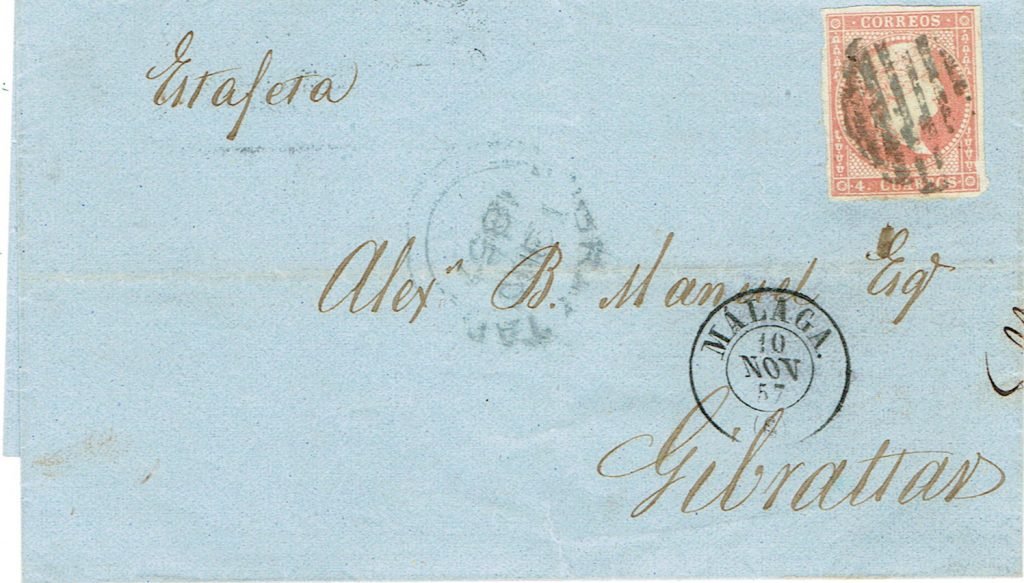 CORREOS
4. CUARTOS
Estafeta
Alexr B. Manuel, Esqr
MALAGA.
10
NOV
57
Gibraltar